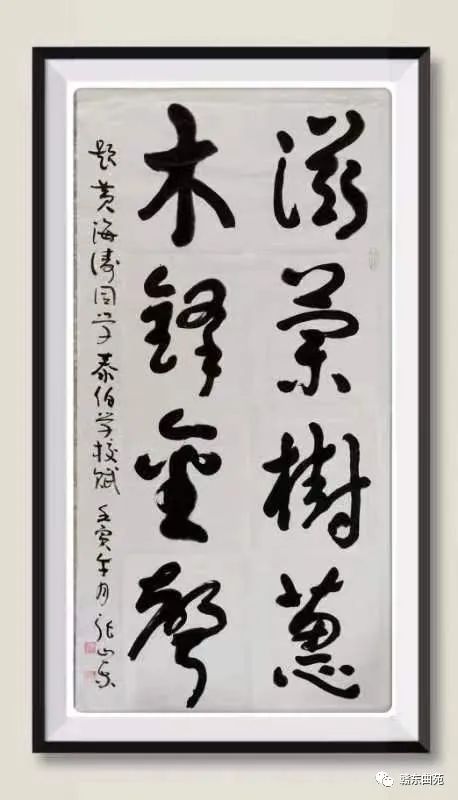 滋蘭樹蕙
木鐸金聲
题黄海涛同学泰伯学校赋 壬寅午月
赣东曲苑